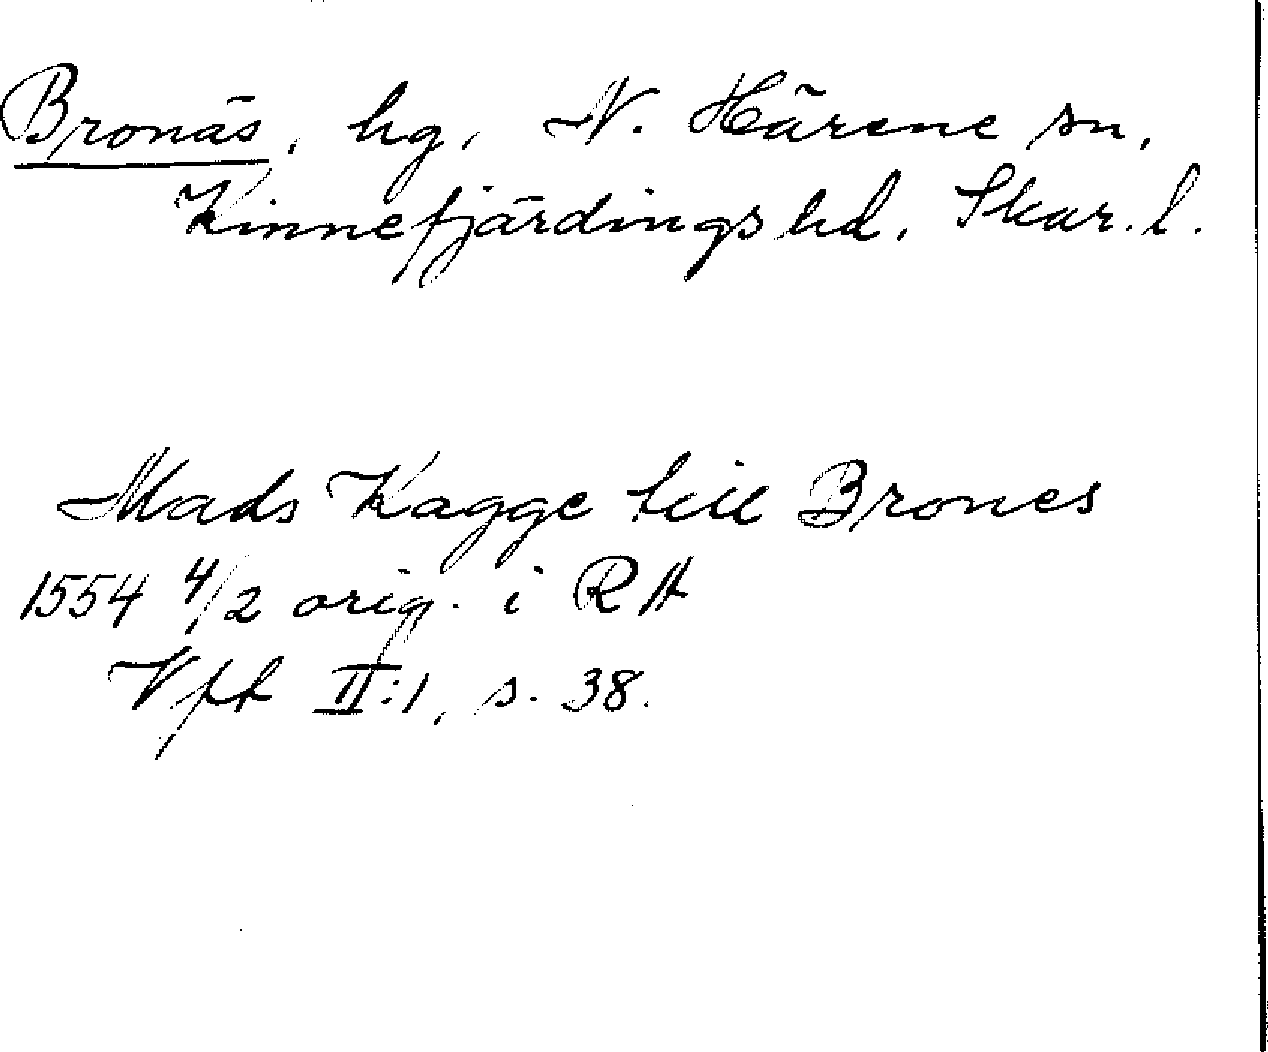 Bronäs, hg, N. Härene sn,
Kinnefjärdings hd. Skar. l.
Mads Kagge till Brones
1554 4/2 orig. i RA
Vft II:1, s. 38.